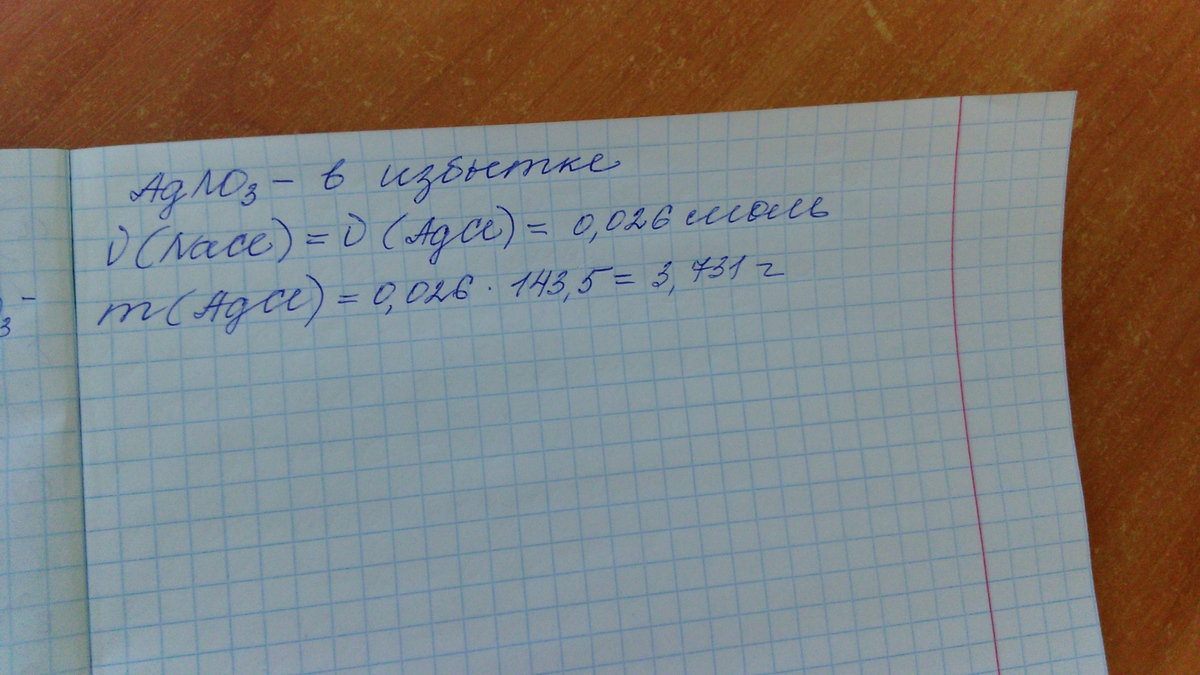 AgNO₃ – в избытке
ν(NaCl) = ν(AgCl) = 0,026 моль
m(AgCl) = 0,026 · 143,5 = 3,731 г
3 –